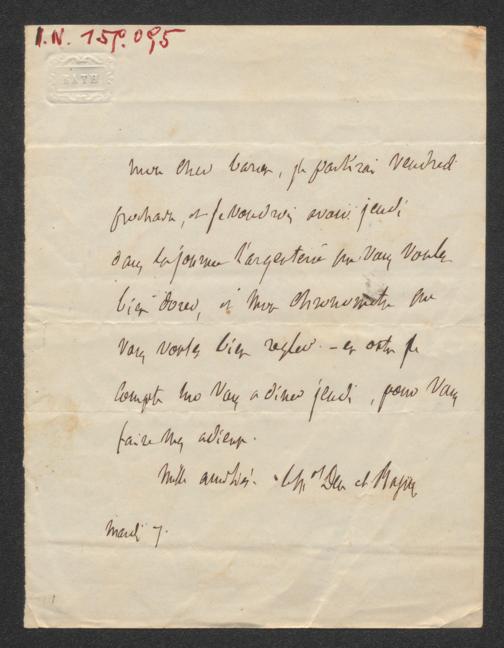 I.N. 159.095
BATH
Mon cher baron, je partirai vendredi
prochain, et je voudrais avoir jeudi
dans la journée l'argenterie que vous voulez
bien dorer, et mon chronomètre que
vous voulez bien regler. – en outre je
compte sur vous a diner jeudi, pour vous
faire mes adieux.
Mille amitiés.
mardi 7.